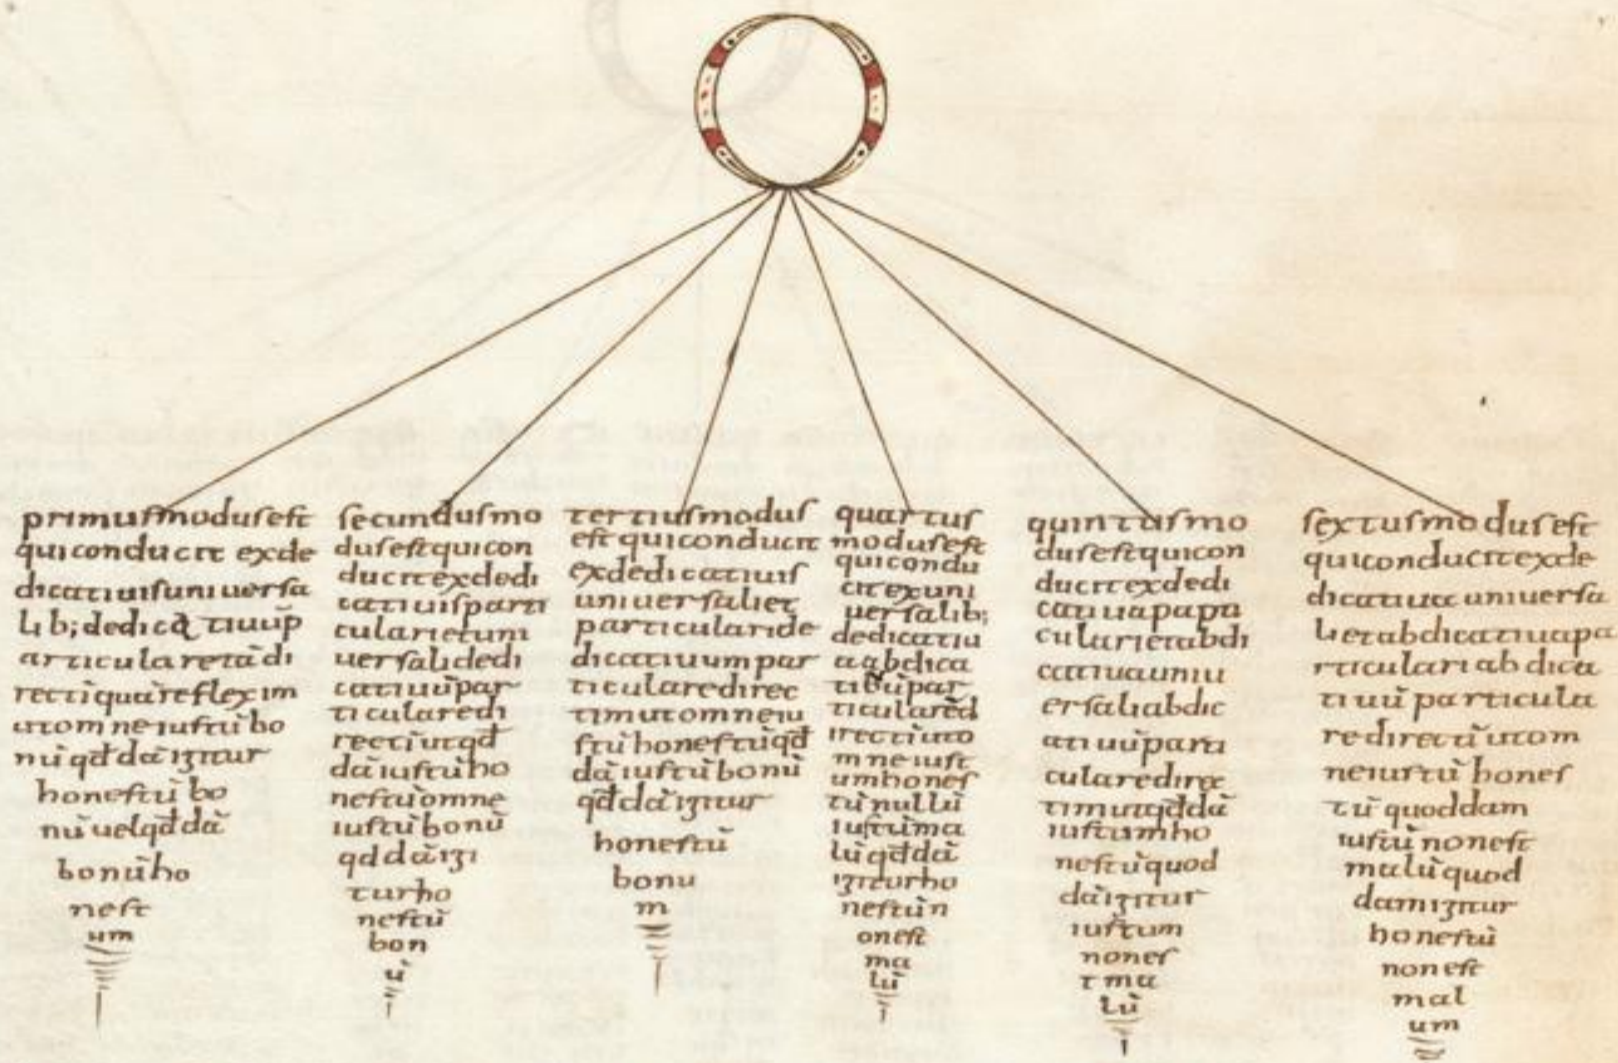 primusmodusest
quiconducit exde
dicatiuisuniuersa
lib; dedicatiuūp
articularetādi
rectīquāreflexim
utomneiustū bo
nū qđdāigitur
honestū bo
nū uelqđdā
bonūho
nest
um
secundusmo
dusestquicon
ducitexdedi
catiuisparti
cularietuni
uersalidedi
catiuūpar
ticularedi
rectīutqđ
dāiustūho
nestūomne
iustūbonū
qddāigi
turho
nestū
bon
ū
tertiusmodus
est quiconducit
exdedicatiuis
uniuersaliet
particularide
dicatiuumpar
ticularedirec
timutomneiu
stūhonestūqđ
dāiustūbonū
qđdāigitur
honestū
bonu
m
quartus
modusest
quicondu
citexuni
uersalib;
dedicatiu
aabdica
tibūpar
ticularēd
irectīuto
mneiust
umhones
tūnullū
iustūma
lūqđdā
igiturho
nestūn
onest
ma
lū
quintusmo
dusestquicon
ducitexdedi
catiuapapa
cularietabdi
catiuauniu
ersaliabdic
atiuūparti
cularedirec
timutqđdā
iustumho
nestūquod
dāigitur
iustum
nones
tma
lū
sextusmodusest
quiconducitexde
dicatiuauniuersa
lietabdicatiuapa
rticulariabdica
tiuūparticula
redirectīutom
neiustūhones
tūquoddam
iustūnonest
malūquod
damigitur
honestū
nonest
mal
um